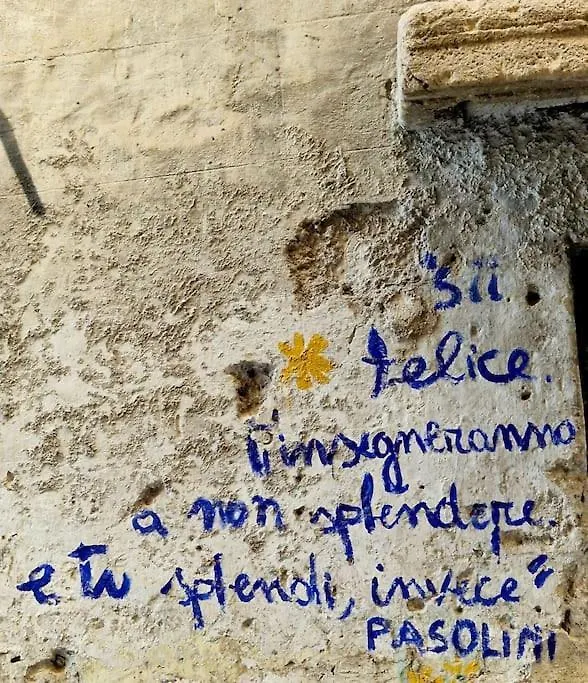 "sii
felice.
t'insegneranno
a non splendere.
e tu splendi, invece"
PASOLINI